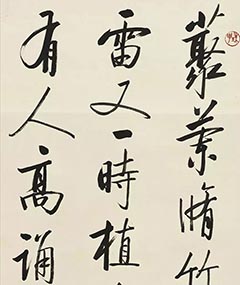 叢蘭脩竹
雷又一時植
有人高誦